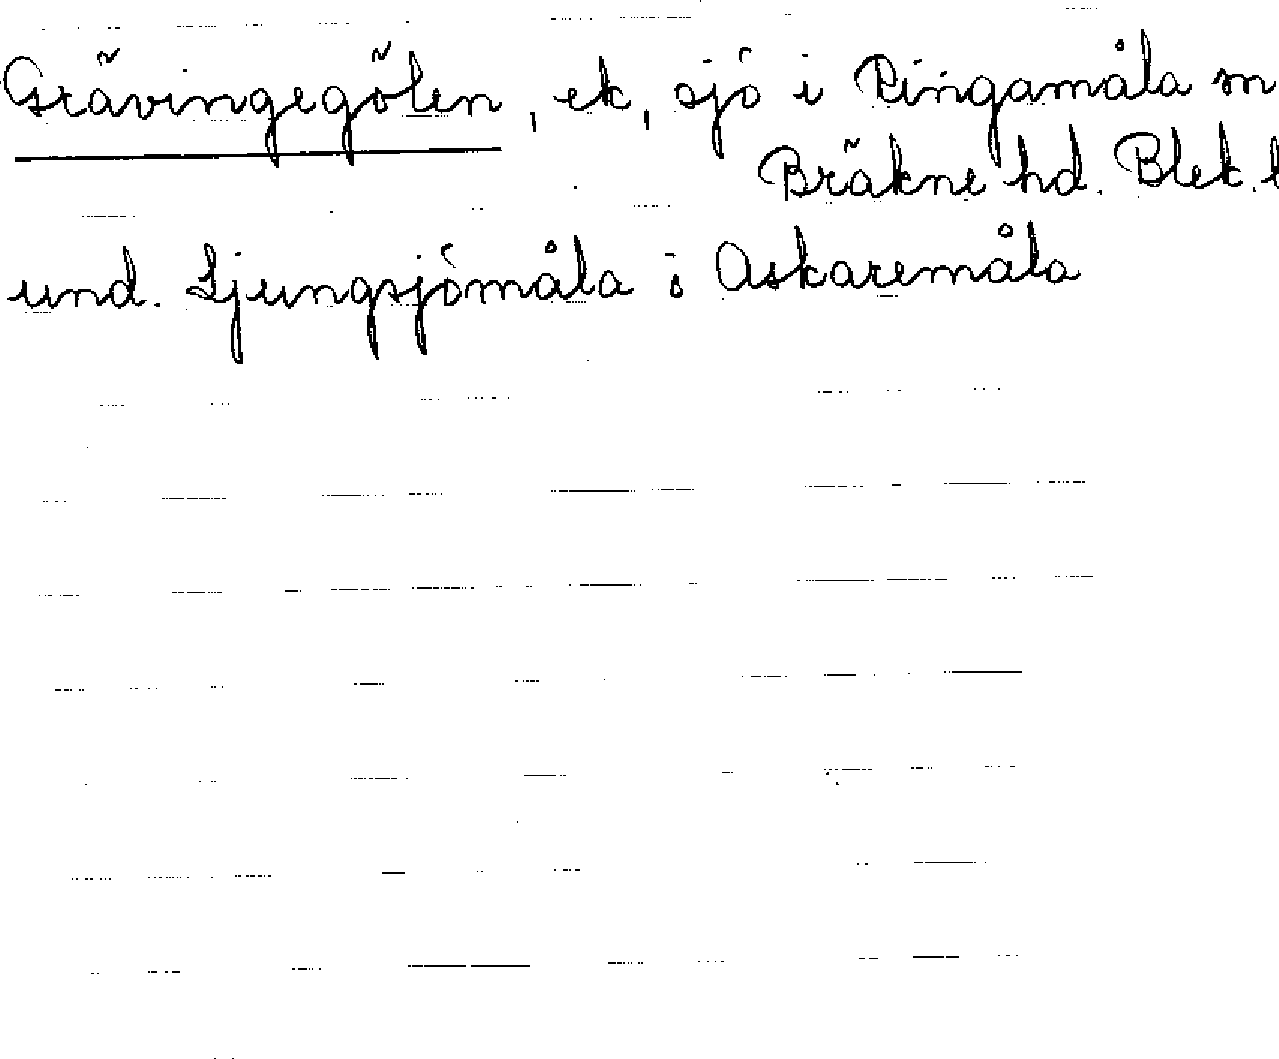 Grävingegölen, ek, sjö i Ringamåla sn
Bräkne hd. Blek. l
und. Ljungsjömåla o Askaremåla